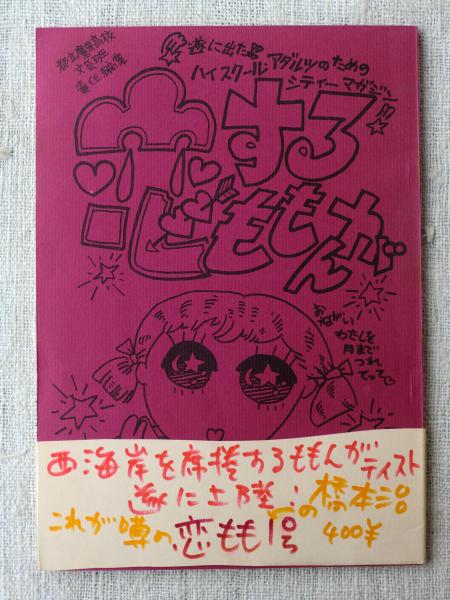 文芸班
責任編集
遂に出た!!
ハイスクールアダルツのための
シティーマガジン!!
恋する
ももんが
おねがい
わたしを
月まで
つれ
てって♡
西海岸を席捲するももんがティスト
遂に上陸!! の橋本治
これが噂の恋もも1号 400¥